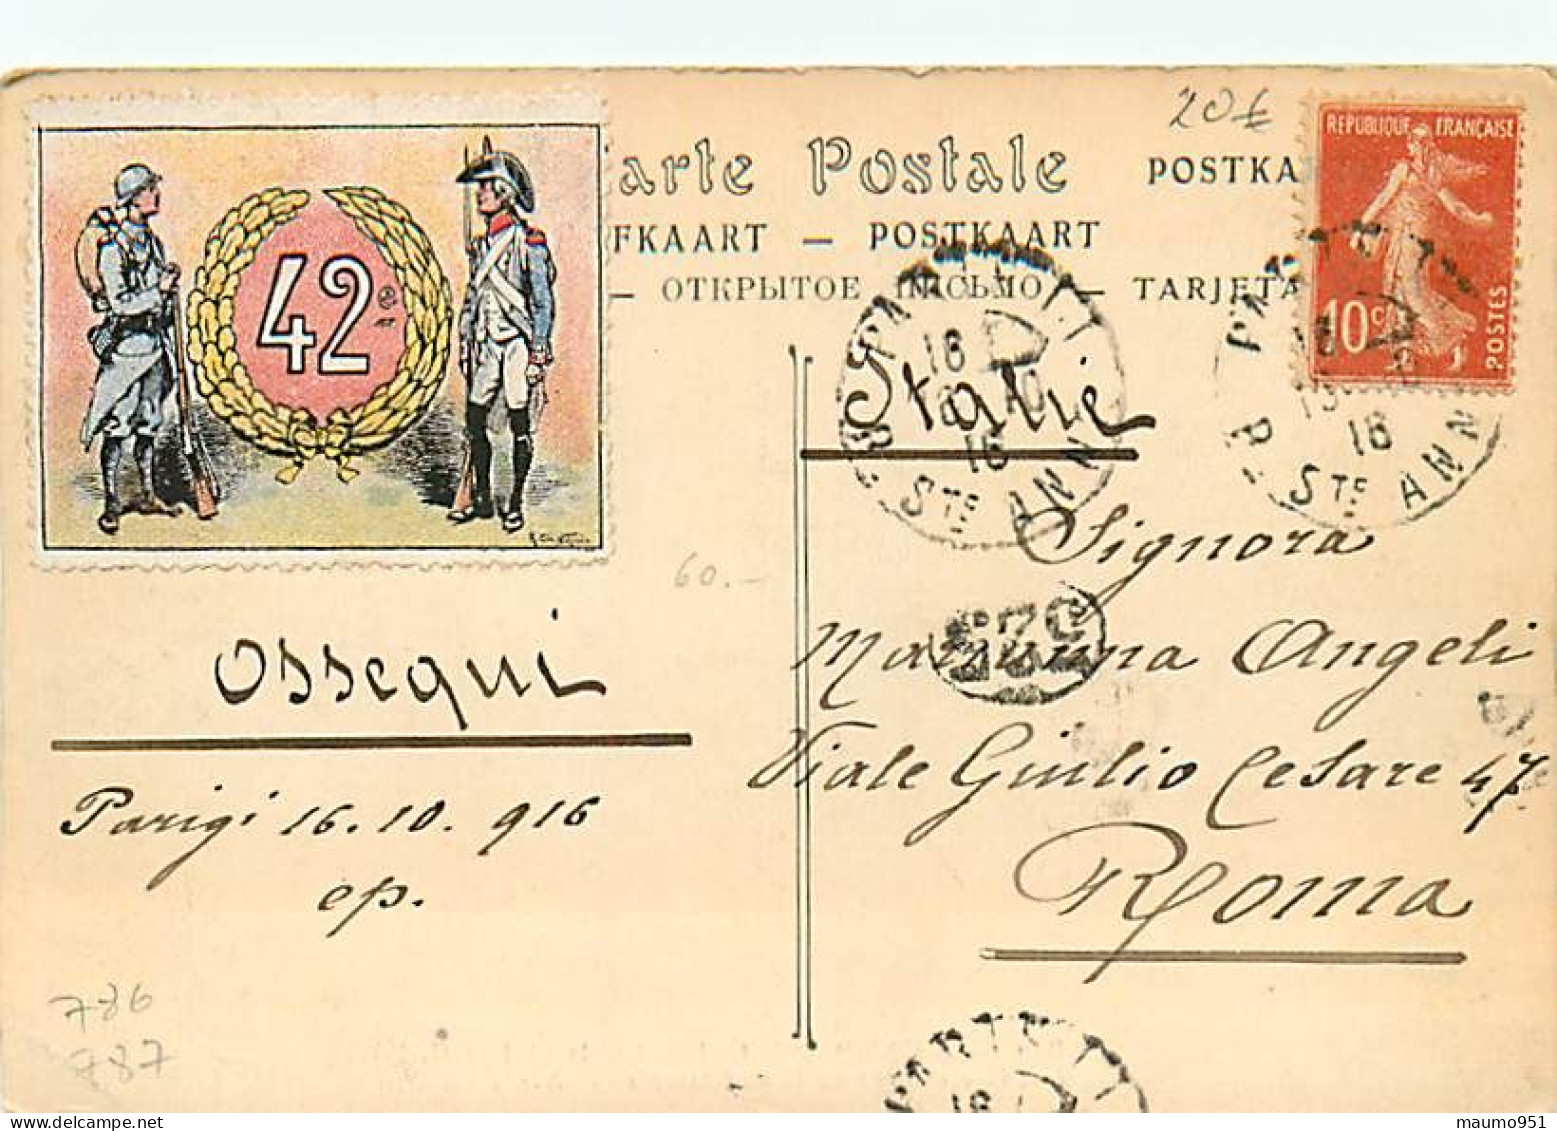 20€
REPUBLIQUE FRANÇAISE
10c
POSTES
42e
arte Postale
POSTKA
FKAART — POSTKAART
— ОТКРЫТОЕ ПИСЬМО — TARJETA
PARIS
18
16
STE ANN
16
STE ANN
Italie
Signora
Marianna Angeli
Viale Giulio Cesare 47
Roma
60.-
Ossequi
Parigi 16.10.916
ep.
786
787
PARIS
18
maumo951